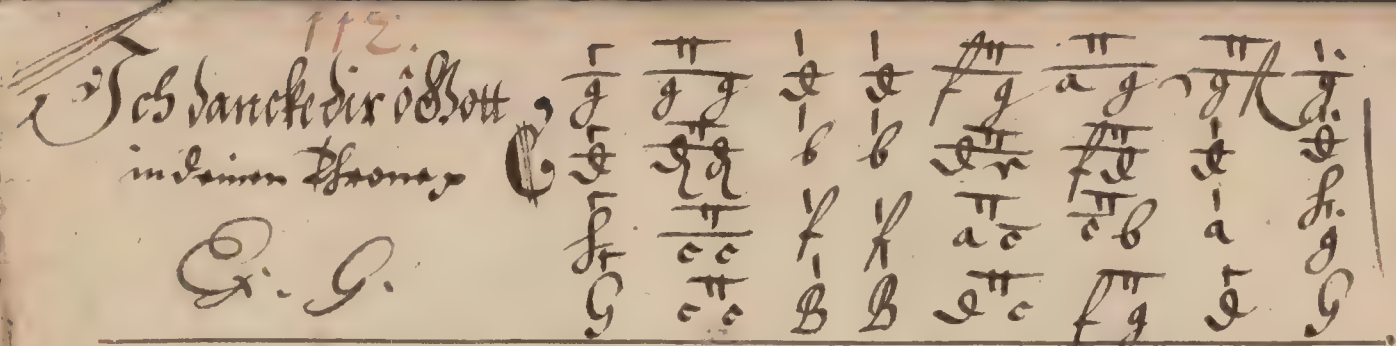 112.
Ich dancke dir ô Gott,
in deinen Throne
E. G.
g g g d d f g a g g g
d d d b b d c f d d d
h c c f f a c c b a h
G c c B B d c f g d G